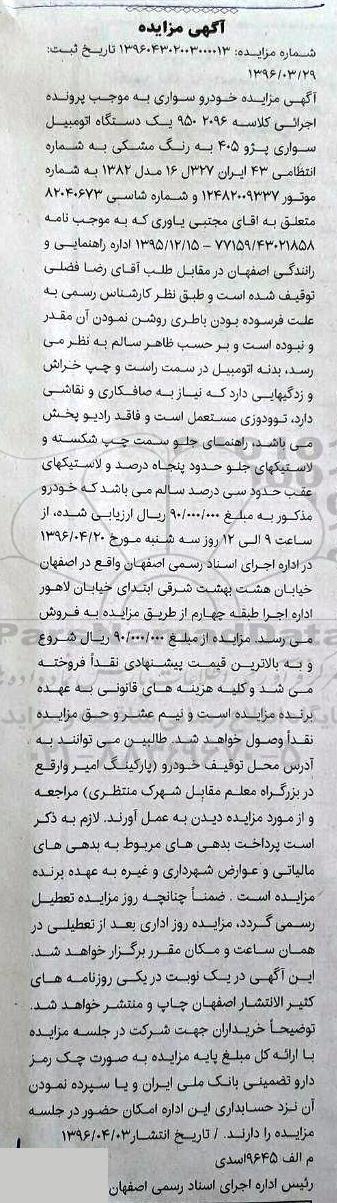 آگهی مزایده
شماره مزایده: ۱۳۹۶۰۴۳۰۲۰۰۳۰۰۰۰۱۳ تاریخ ثبت:
۱۳۹۶/۰۳/۲۹
آگهی مزایده خودرو سواری به موجب پرونده
اجرائی کلاسه ۲۰۹۶ ۹۵۰ یک دستگاه اتومبیل
سواری پژو ۴۰۵ به رنگ مشکی به شماره
انتظامی ۴۳ ایران ۳۲۷ل ۱۶ مدل ۱۳۸۲ به شماره
موتور ۱۲۴۸۲۰۰۹۳۳۷ و شماره شاسی ۸۲۰۴۰۶۷۳
متعلق به اقای مجتبی یاوری که به موجب نامه
۷۷۱۵۹/۴۳۰۲۱۸۵۸ – ۱۳۹۵/۱۲/۱۵ اداره راهنمایی و
رانندگی اصفهان در مقابل طلب آقای رضا فضلی
توقیف شده است و طبق نظر کارشناس رسمی به
علت فرسوده بودن باطری روشن نمودن آن مقدر
و نبوده است و بر حسب ظاهر سالم به نظر می
رسد، بدنه اتومبیل در سمت راست و چپ خراش
و زدگیهایی دارد که نیاز به صافکاری و نقاشی
دارد، تودوزی مستعمل است و فاقد رادیو پخش
می باشد، راهنمای جلو سمت چپ شکسته و
لاستیکهای جلو حدود پنجاه درصد و لاستیکهای
عقب حدود سی درصد سالم می باشد که خودرو
مذکور به مبلغ ۹۰/۰۰۰/۰۰۰ ریال ارزیابی شده، از
ساعت ۹ الی ۱۲ روز سه شنبه مورخ ۱۳۹۶/۰۴/۲۰
در اداره اجرای اسناد رسمی اصفهان واقع در اصفهان
خیابان هشت بهشت شرقی ابتدای خیابان لاهور
اداره اجرا طبقه چهارم از طریق مزایده به فروش
می رسد. مزایده از مبلغ ۹۰/۰۰۰/۰۰۰ ریال شروع
و به بالاترین قیمت پیشنهادی نقداً فروخته
می شد و کلیه هزینه های قانونی به عهده
برنده مزایده است و نیم عشر و حق مزایده
نقداً وصول خواهد شد. طالبین می توانند به
آدرس محل توقیف خودرو (پارکینگ امیر وارقع
در بزرگراه معلم مقابل شهرک منتظری) مراجعه
و از مورد مزایده دیدن به عمل آورند. لازم به ذکر
است پرداخت بدهی های مربوط به بدهی های
مالیاتی و عوارض شهرداری و غیره به عهده برنده
مزایده است . ضمناً چنانچه روز مزایده تعطیل
رسمی گردد، مزایده روز اداری بعد از تعطیلی در
همان ساعت و مکان مقرر برگزار خواهد شد.
این آگهی در یک نوبت در یکی روزنامه های
کثیر الانتشار اصفهان چاپ و منتشر خواهد شد.
توضیحاً خریداران جهت شرکت در جلسه مزایده
با ارائه کل مبلغ پایه مزایده به صورت چک رمز
دارو تضمینی بانک ملی ایران و یا سپرده نمودن
آن نزد حسابداری این اداره امکان حضور در جلسه
مزایده را دارند. / تاریخ انتشار ۱۳۹۶/۰۴/۰۳
م الف ۹۶۴۵اسدی
رئیس اداره اجرای اسناد رسمی اصفهان